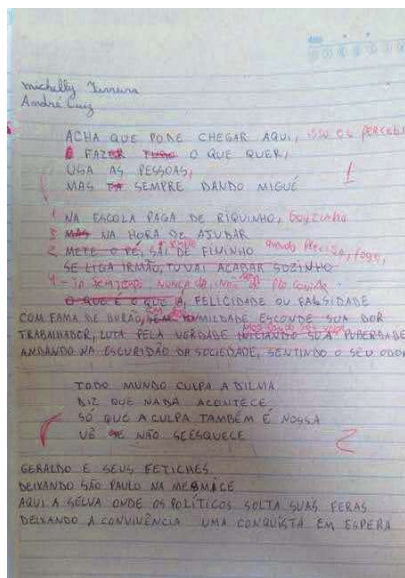 Michelly Ferreira
André Luiz
ACHA QUE PODE CHEGAR AQUI, ISSO EU PERCEBI
FAZER TUDO O QUE QUER,
USA AS PESSOAS,
MAS TA SEMPRE DANDO MIGUÉ
1
1 NA ESCOLA PAGA DE RIQUINHO, boyzinho
3 MAS NA HORA DE AJUDAR
2 METE O PÉ, SAI DE FININHO quando precisa, foge,
SE LIGA IRMÃO, TU VAI ACABAR SOZINHO
4
O QUE É O QUE É, FELICIDADE OU FALSIDADE
COM FAMA DE DURÃO, SEM HUMILDADE ESCONDE SUA DOR
TRABALHADOR, LUTA PELA VERDADE INICIANDO SUA PUBERDADE
ANDANDO NA ESCURIDÃO DA SOCIEDADE, SENTINDO O SEU ODOR
TODO MUNDO CULPA A DILMA
DIZ QUE NADA ACONTECE
SÓ QUE A CULPA TAMBÉM É NOSSA
VÊ SE NÃO SE ESQUECE
2
GERALDO E SEUS FETICHES
DEIXANDO SÃO PAULO NA MESMICE
AQUI A SELVA ONDE OS POLÍTICOS SOLTA SUAS FERAS
DEIXANDO A CONVIVÊNCIA UMA CONQUISTA EM ESPERA